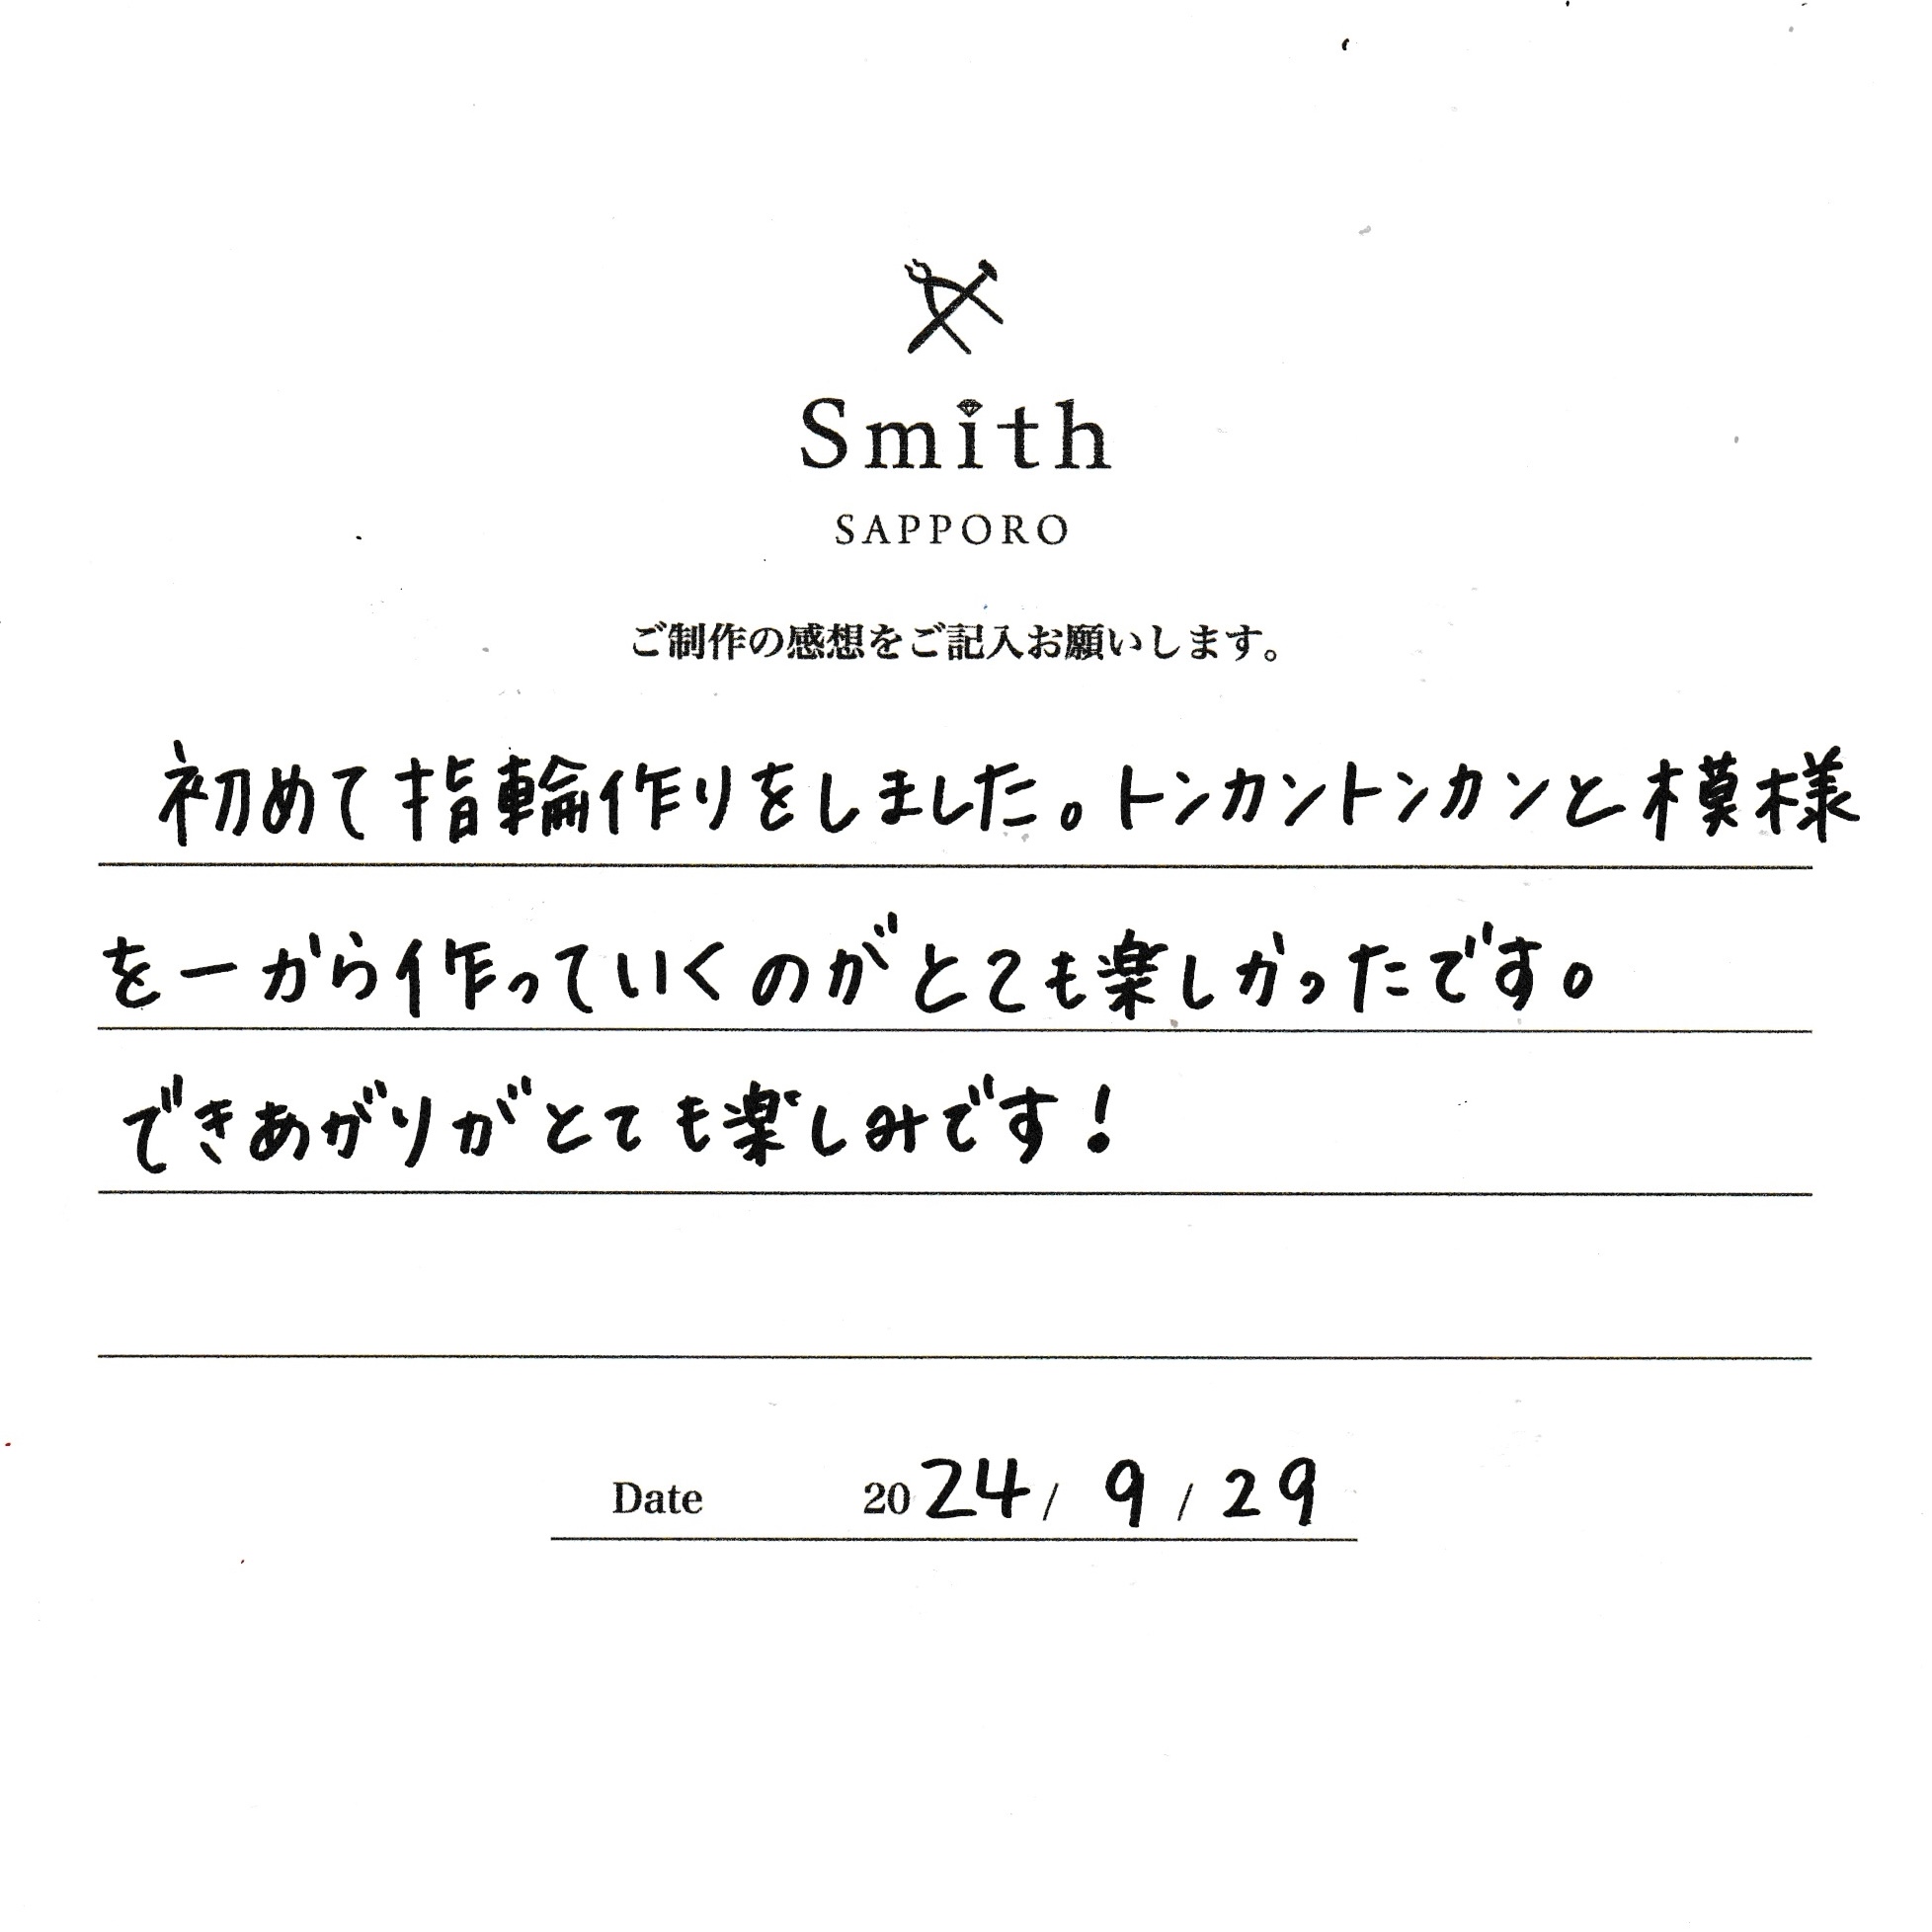 Smith
SAPPORO
ご制作の感想をご記入お願いします。
初めて指輪作りをしました。トンカントンカンと模様
を一から作っていくのがとても楽しかったです。
できあがりがとても楽しみです!
Date 2024/ 9 / 29